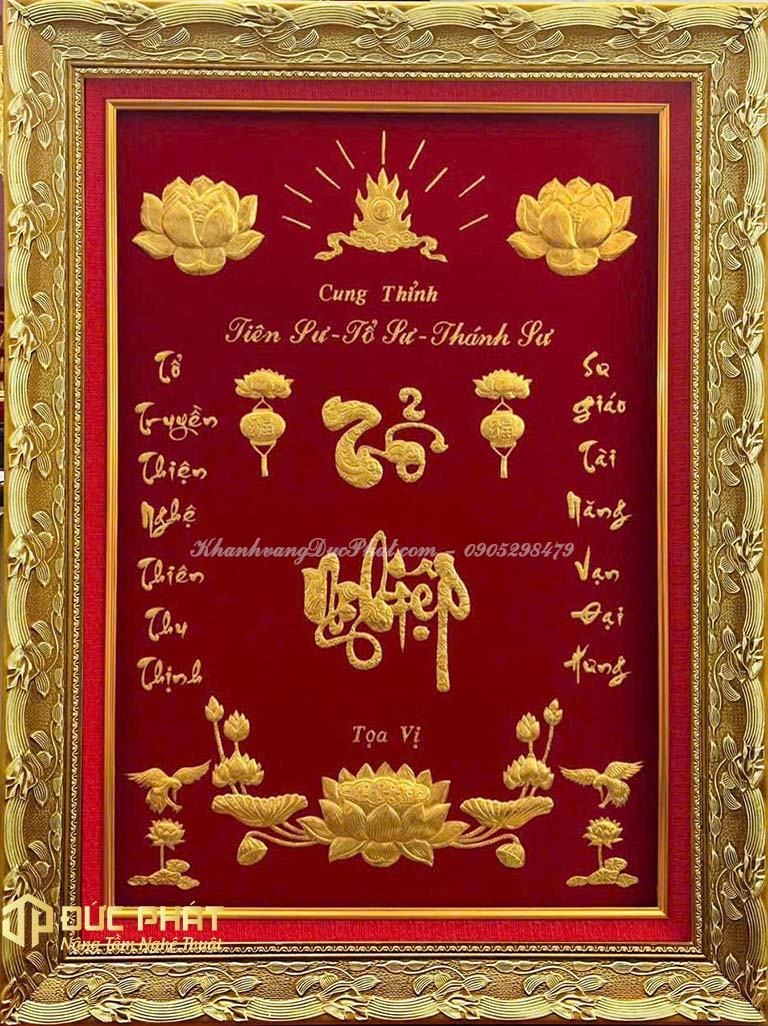 Cung Thỉnh
Tiên Sư - Tổ Sư - Thánh Sư
Tổ
Truyền
Thiện
Nghệ
Thiên
Thu
Thịnh
Tổ
Nghiệp
Sư
Giáo
Tài
Năng
Vạn
Đại
Hưng
福
福
KhanhvangDucPhat.com - 0905298479
Tọa Vị
ĐỨC PHÁT
Nâng Tầm Nghệ Thuật